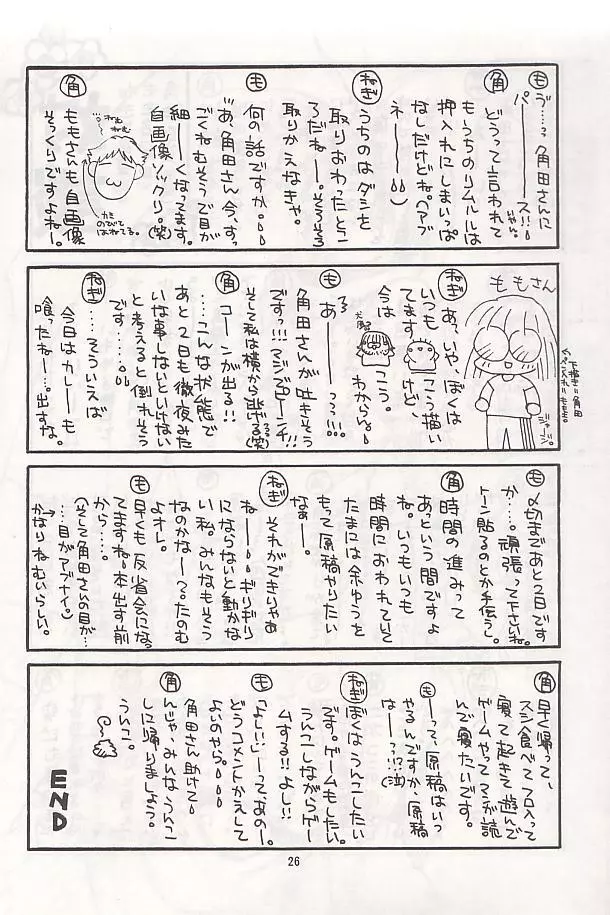 も う゛……っ 角田さんに
パ———ス!!
角 どうって言われて
もうちのリムルルは
押入れにしまいっぱ
なしだけどね。(アプ
ネ———)
ねぎ うちのはダシを
取りおわったとこ
ろだねー。そろそろ
取りかえなきゃ。
も 何の話ですか。
あ、角田さん今、すっ
ごくねむそうで目が
細——くなってます。
自画像ソックリ。(笑)
ねむ
ねむ
カミ
のびて
はねてる。
角 ももさんも自画像
そっくりですよねー。
ももさん
下描き:角田
ペン入れ:ももき。
ジャージ。
ねぎ あっ、いや、ぼくは
いつも こう描い
てます けど、
今は こう。
わからん。
も あ———っっ!!!
角田さんが吐きそう
ですっ!!!マジでピーンチ!!
そして私は横から逃げる(笑)
角 コーンが出る!!
……こんな状態で
あと2日も徹夜みた
いな事しないといけない
と考えると倒れそう
です……。
ねぎ ……そういえば
今日はカレーも
喰ったねー…。出すな。
も 〆切まであと2日です
か…。頑張って下さいね。
トーン貼るのとか手伝うし。
角 時間の進みって
あっという間ですよ
ね。いつもいつも
時間におわれていて
たまには余ゆうを
もって原稿やりたい
なぁー。
ねぎ それができりゃぁ
ねー ギリギリ
にならないと動かな
い私。みんなもそう
なのかなー?たのむ
よオレ。
も 早くも反省会になっ
てますね。本出す前
から……。
(そして角田さんの目が…
…目がアブナイ。)
かなりねむいらしい。
角 早く帰って、
スシ食べてフロ入って
寝て起きて遊んで
ゲームやってマンガ読
んで寝たいです。
も ーって、原稿はいつ
やるんですか、原稿
はーっっ!?(泣)
ねぎ ぼくはうんこしたい
です。ゲームもしたい。
うんこしながらゲー
ムする!!よし!!
も 「よし!」ーってあのー。
どうコメントかえして
よいのやら。
角田さん助けて。
角 んじゃ、みんなうんこ
しに帰りましょう。
うんこ。
END
26